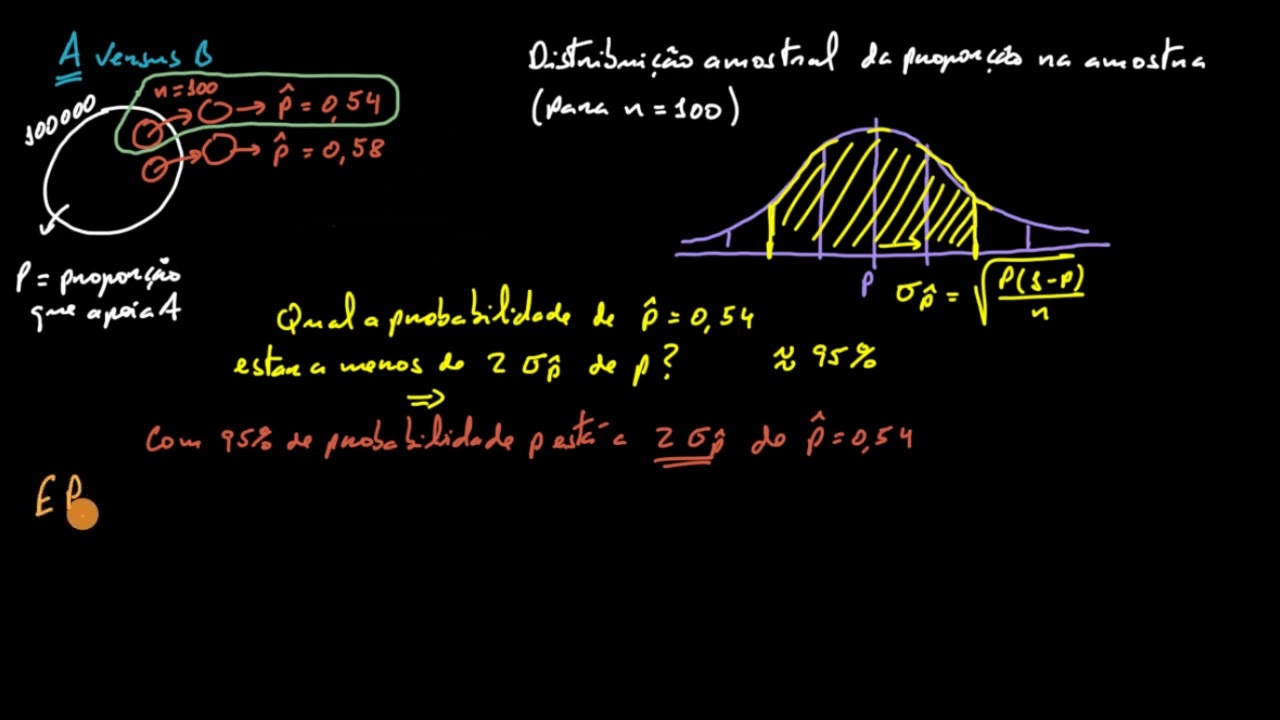 A versus B
100000
n = 100
p̂ = 0,54
p̂ = 0,58
P = proporção
que apoia A
Distribuição amostral da proporção na amostra
(para n = 100)
P
σp̂ = √(P(1-P)/n)
Qual a probabilidade de p̂ = 0,54
estar a menos de 2 σp̂ de p? ≈ 95%
⇒
Com 95% de probabilidade p está a 2 σp̂ de p̂ = 0,54
E P